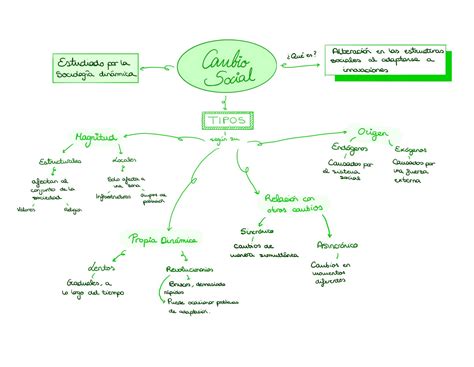 Cambio
Social
Estudiado por la
Sociología dinámica
¿Qué es?
Alteración en las estructuras
sociales al adaptarse a
innovaciones
TIPOS
según su
Magnitud
Estructurales
afectan al
conjunto de la
sociedad
Valores
Religión
Locales
Sólo afecta a
una zona
Infraestructuras
Grupos de
población
Origen
Endógenos
Causados por
el sistema
social
Exógenos
Causados por
una fuerza
externa
Propia Dinámica
Lentos
Graduales, a
lo largo del tiempo
Revolucionarios
Bruscos, demasiado
rápidos
Puede ocasionar problemas
de adaptación.
Relación con
otros cambios
Sincrónico
cambios de
manera simultánea
Asincrónico
Cambios en
momentos
diferentes